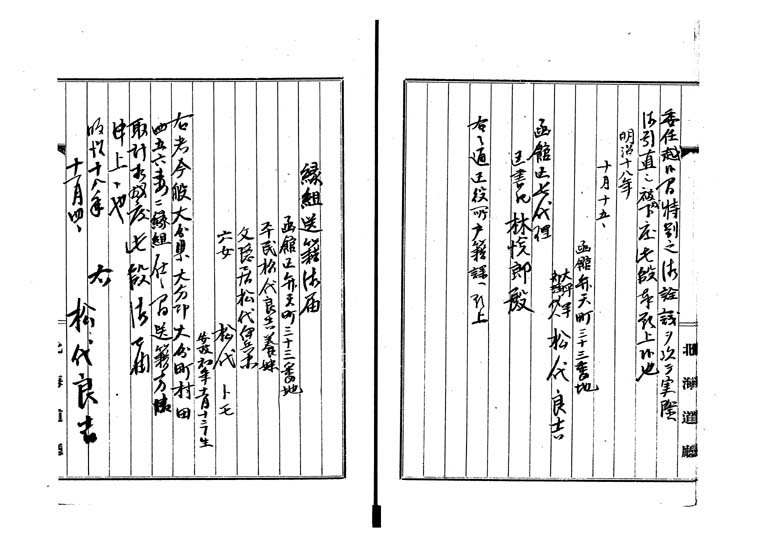 委任越候間特別之御詮議ヲ以テ実際
御引直シ被下度此段奉願上候也
明治十八年
十月十五日
函館弁天町三十三番地
松代良吉
函館区長代理
区書記 林悦郎殿
右之通区役所戸籍課へ願上
北海道廳
縁組送籍御届
函館区弁天町三十三番地
平民松代良吉養妹
父隠居松代伊兵衛
六女
松代トモ
安政元年十二月十二日生
右者今般大分県大分郡大分町村田
四五六妻ニ縁組仕候間送籍方御
取計相成度此段御届
申上候也
明治十八年
十一月四日
右 松代良吉
北海道廳